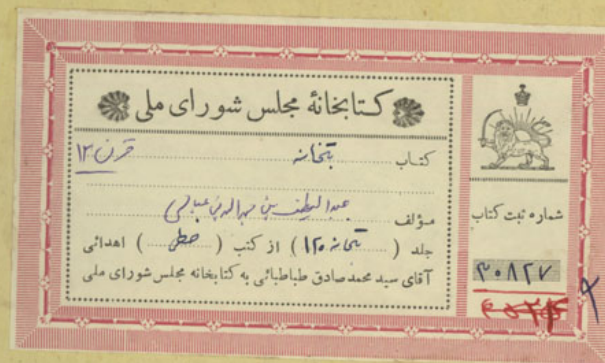 کتابخانهٔ مجلس شورای ملی
کتاب بتخانه قرن ۱۲
مؤلف عبداللطیف بن
جلد ( ) از کتب ( خطی ) اهدائی
آقای سید محمد صادق طباطبائی به کتابخانه مجلس شورای ملی
شماره ثبت کتاب
۳۰۸۲۷